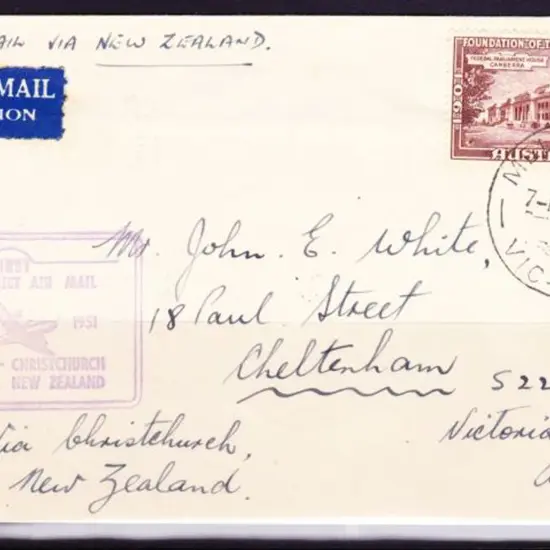 AIL VIA NEW ZEALAND.
MAIL
ION
FOUNDATION OF T
FEDERAL PARLIAMENT HOUSE
CANBERRA
1901
AUST
7-
VIC
FIRST
AIR MAIL
1951
CHRISTCHURCH
NEW ZEALAND
Mr. John E. White,
18 Paul Street
Cheltenham S22
Victoria
Via Christchurch,
New Zealand.